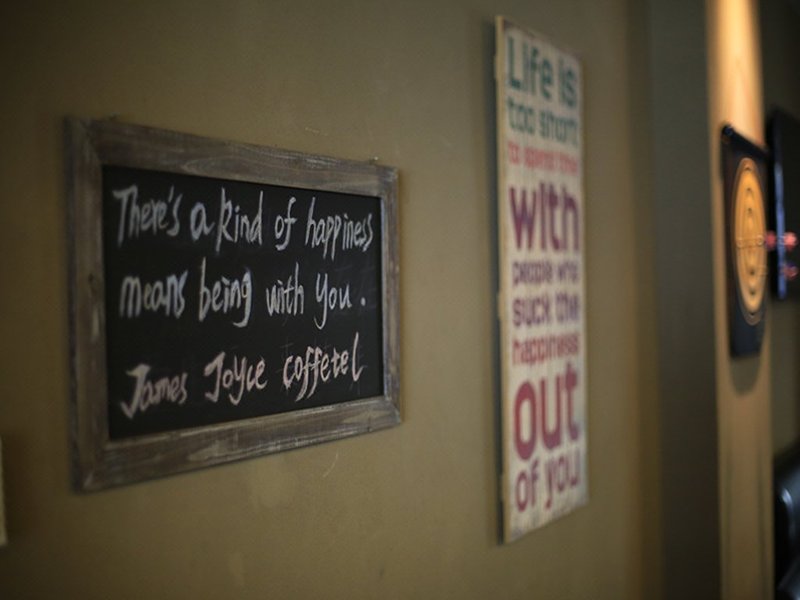 There's a kind of happiness
means being with you.
James Joyce coffetel
Life is
too short
to spend time
with
people who
suck the
happiness
out
of you